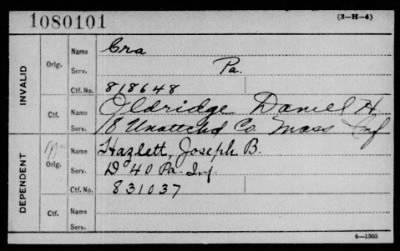 1080101 (3-H-4)
INVALID
Orig.
Name Cra
Serv. Pa.
Ctf. No. 818648
Ctf. Name Oldridge Daniel H.
Serv. 18 Unattchd Co. Mass Inf
DEPENDENT
Orig.
Name Hazlett, Joseph B.
Serv. D 40 Pa. Inf.
Ctf. No. 831037
Ctf.
Name
Serv.